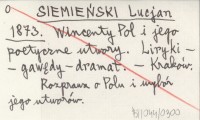 o
SIEMIEŃSKI Lucjan
1873. Wincenty Pol i jego
poetyczne utwory. Liryki -
- gawędy - dramat. - Kraków.
Rozprawa o Polu i wybór
jego utworów.